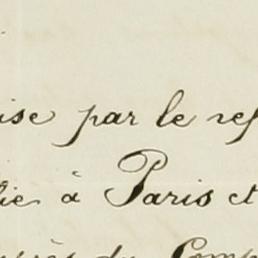 ise par le res
lie à Paris et
du Comp